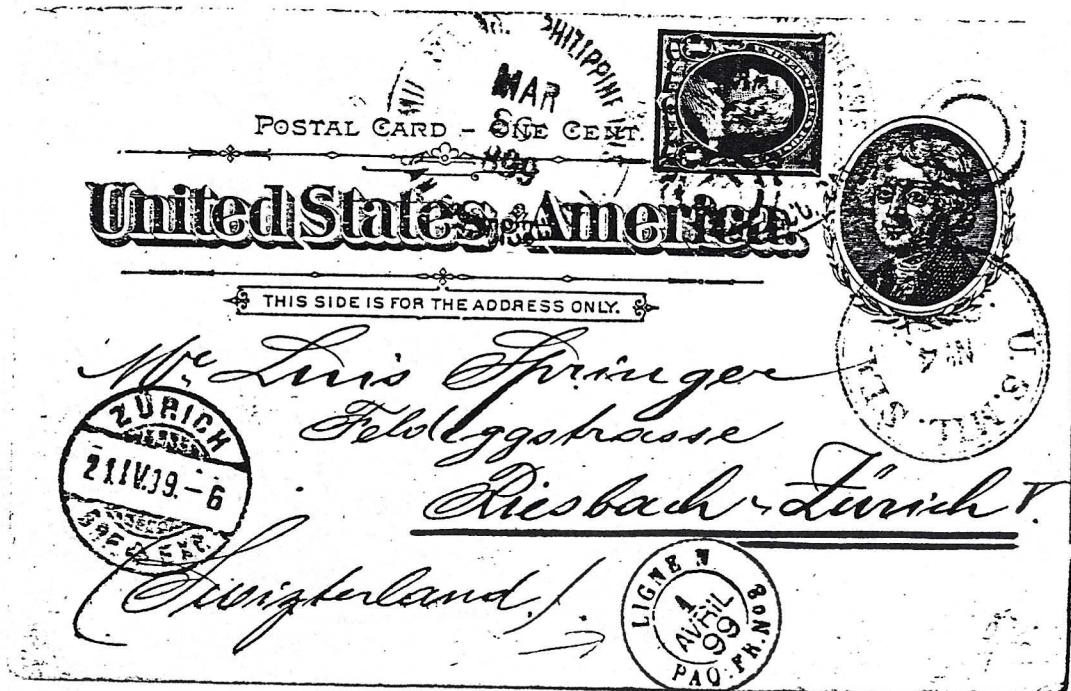 PHILIPPINE
MAR
1899
POSTAL CARD – ONE CENT
United States of America.
THIS SIDE IS FOR THE ADDRESS ONLY.
U. S. MIL. STA.
4
Mr Luis Springer
Feldeggstrasse
Riesbach - Zürich V.
(Swizterland)
ZÜRICH
21.IV.99.-6
BRF. EXP.
LIGNE N
1
AVRIL
99
PAQ. FR. No 8